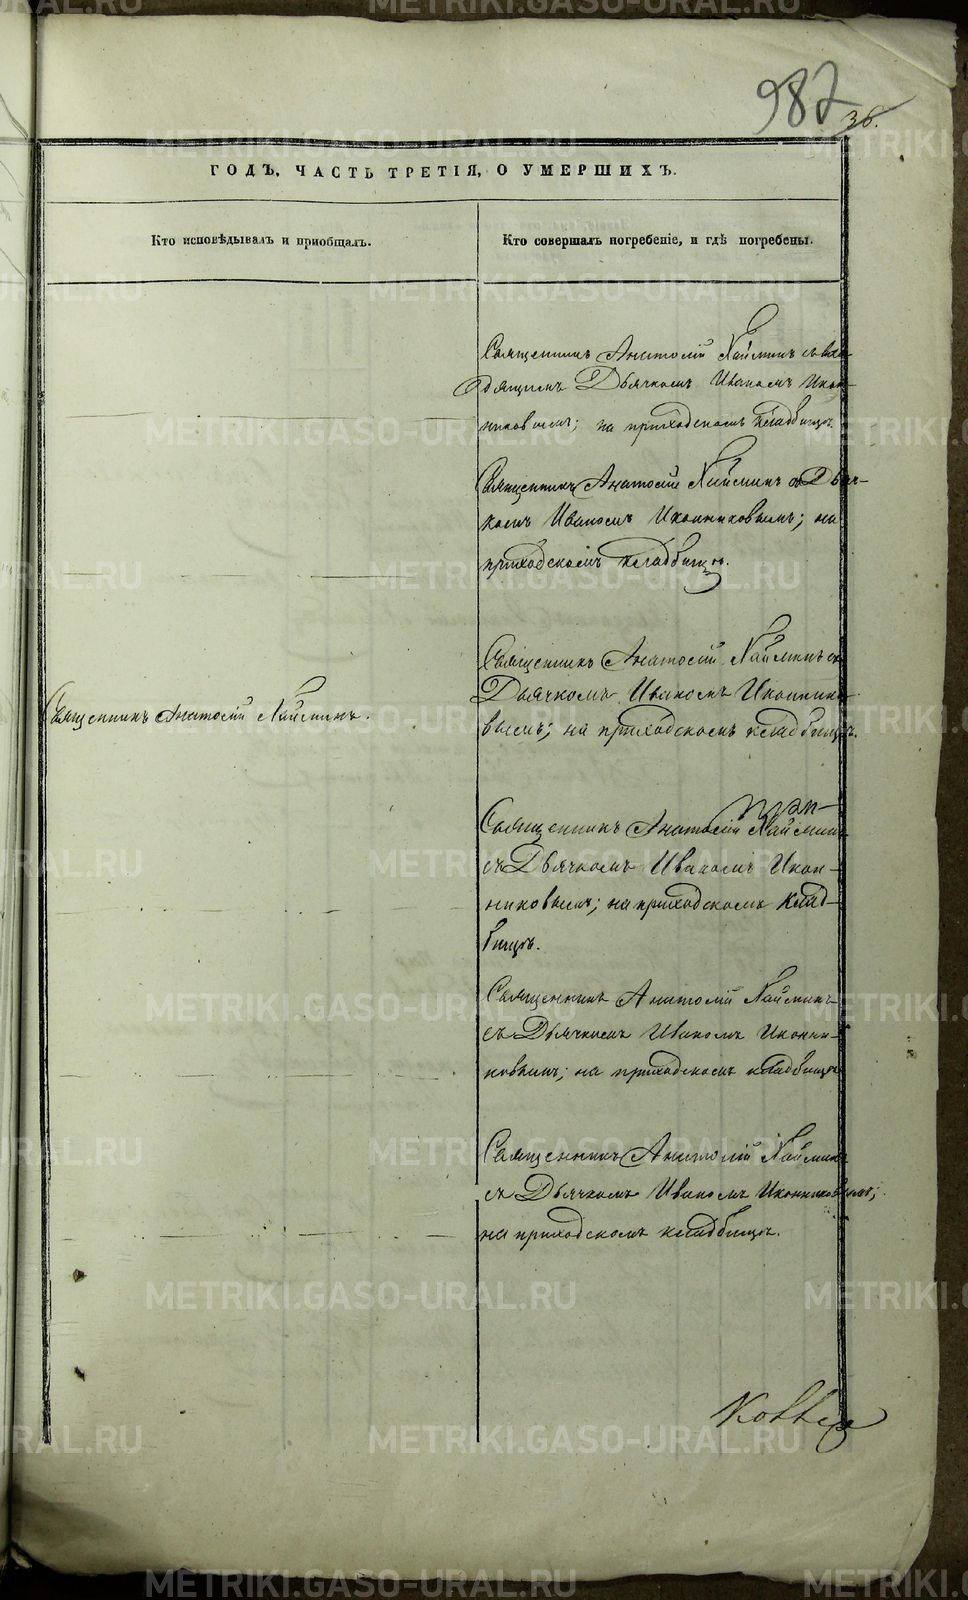 987
36.
ГОДЪ, ЧАСТЬ ТРЕТІЯ, О УМЕРШИХЪ.
Кто исповѣдывалъ и пріобщалъ.
Кто совершалъ погребеніе, и гдѣ погребены.
Священникъ Анатолій Наймин
Дьячкомъ Иваномъ Икон-
никовымъ; на приходскомъ кладбищѣ.
Священникъ Анатолій Найминъ съ Дьяч-
комъ Иваномъ Иконниковымъ; на
приходскомъ кладбищѣ.
Священникъ Анатолій Найминъ.
Священникъ Анатолій Найминъ съ
Дьячкомъ Иваномъ Иконнико-
вымъ; на приходскомъ кладбищѣ.
Священникъ Анатолій Найминъ
съ Дьячкомъ Иваномъ Икон-
никовымъ; на приходскомъ клад-
бищѣ.
Священникъ Анатолій Найминъ
съ Дьячкомъ Иваномъ Иконни-
ковымъ; на приходскомъ кладбищѣ
Священникъ Анатолій Найминъ
съ Дьячкомъ Иваномъ Иконниковымъ;
на приходскомъ кладбищѣ.
METRIKI.GASO-URAL.RU